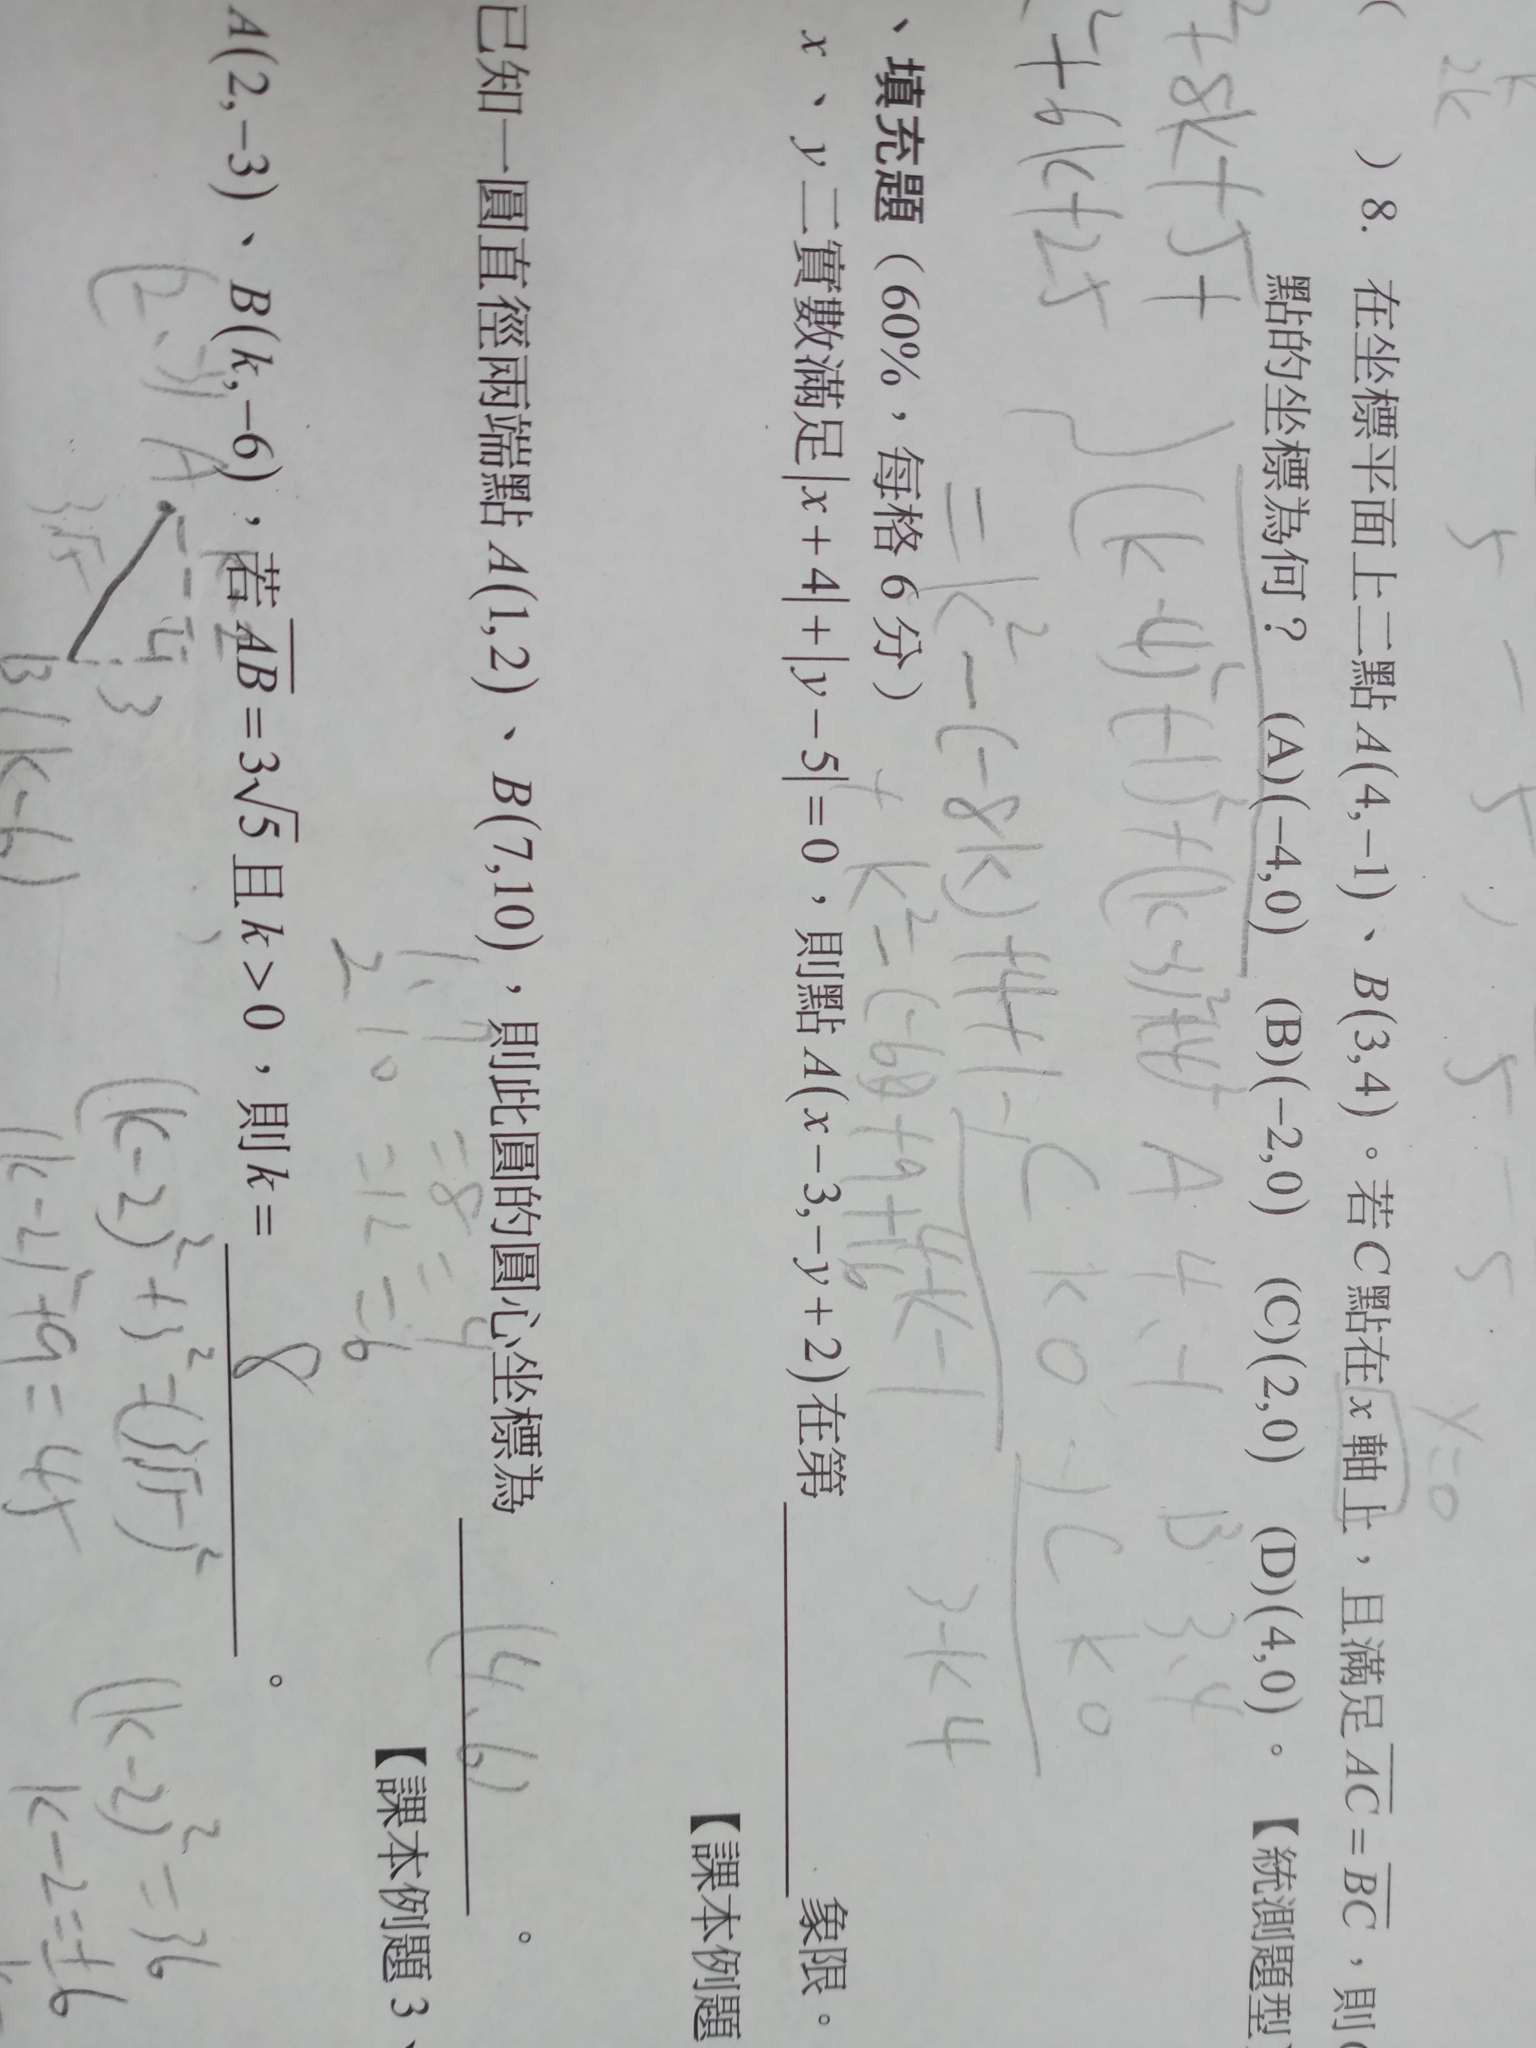 k
2k
5 - 5 , 5 - 5
y=0
)8. 在坐標平面上二點 A(4,−1)、B(3,4)。若C點在x軸上，且滿足 AC = BC，則C
點的坐標為何？ (A)(−4,0) (B)(−2,0) (C)(2,0) (D)(4,0)。 【統測題型】
²+8k+5+
²+6k+25
A 4.-1 B 3.4
C k 0 -1 C k 0
4-k-1 3-k 4
、填充題（60%，每格 6 分）
x、y二實數滿足|x+4|+|y−5|=0，則點 A(x−3,−y+2)在第 象限。
【課本例題
已知一圓直徑兩端點 A(1,2)、B(7,10)，則此圓的圓心坐標為 (4.6) 。
1.7 =8 = 4
2 10 =12 =6
【課本例題 3、
A(2,−3)、B(k,−6)，若 AB = 3√5 且 k > 0，則 k = 8 。
A
3√5
3
B(k-6)
(k-2)²+3²=(3√5)²
(k-2)²+9=45
(k-2)²=36
k-2=±6